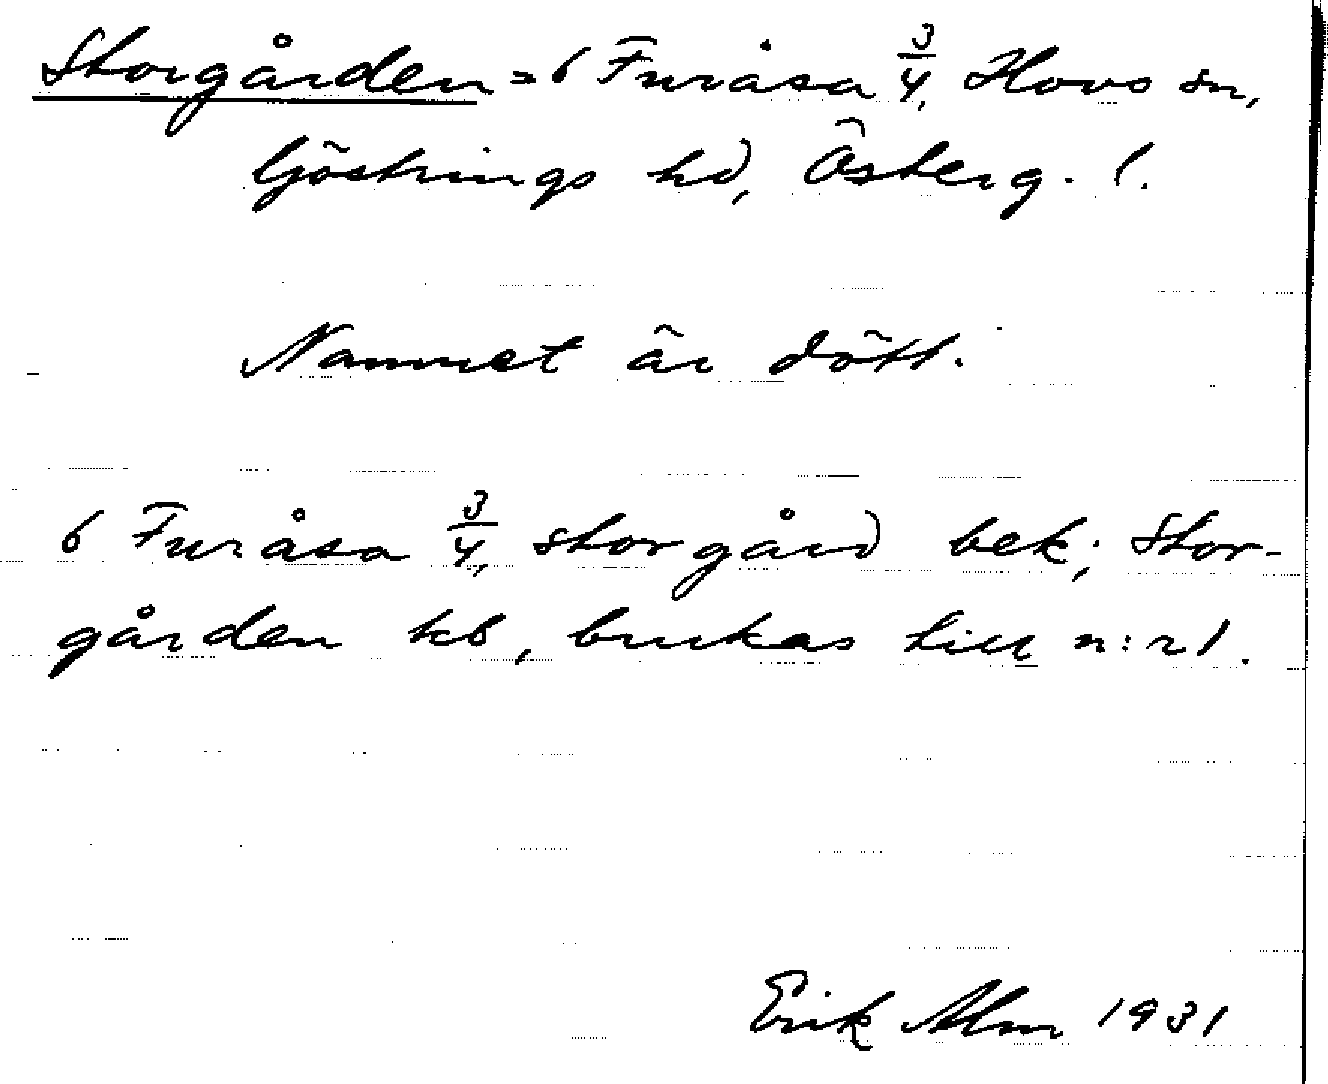 Storgården = 6 Furåsa 3/4, Hovs sn,
Göstrings hd, Österg. l.
Namnet är dött.
6 Furåsa 3/4, storgård bek; Stor-
gården kb, brukas till n:r 1.
Erik Alm 1931